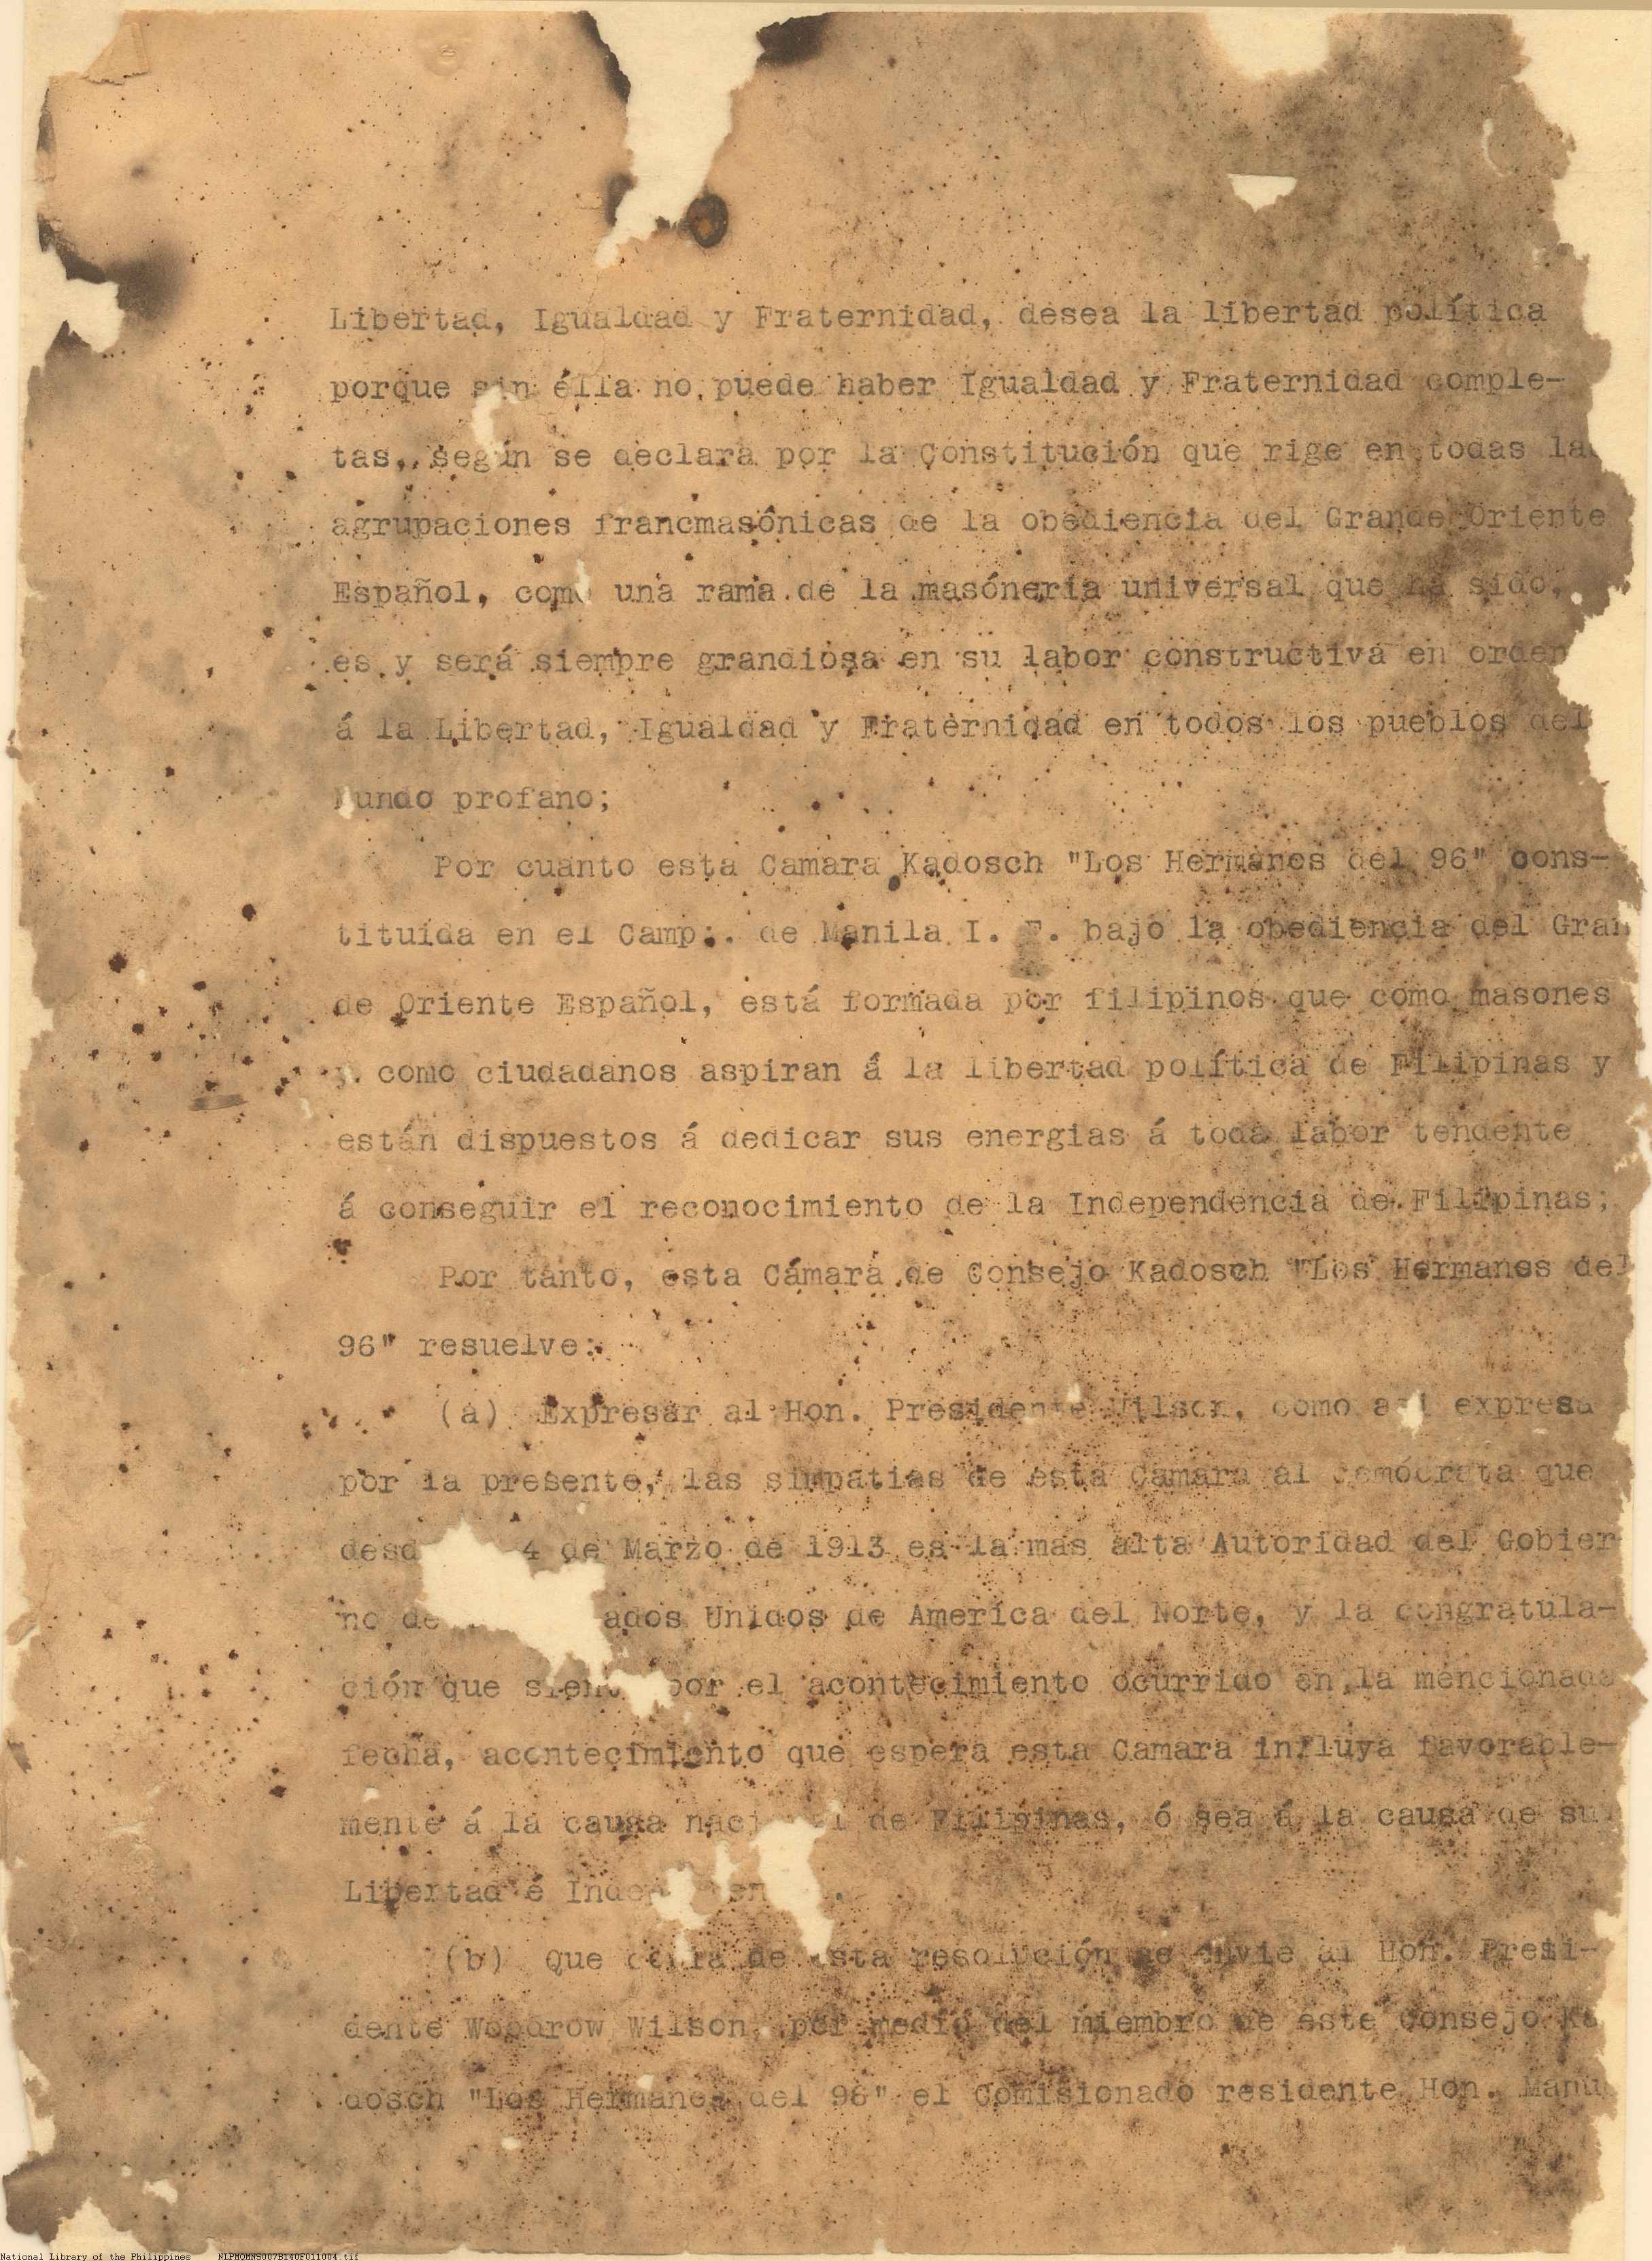 Libertad, Igualdad y Fraternidad, desea la libertad política
porque sin élla no puede haber Igualdad y Fraternidad comple-
tas, según se declara por la Constitución que rige en todas la
agrupaciones francmasónicas de la obediencia del Grande Oriente
Español, como una rama de la masónería universal que ha sido,
es y será siempre grandiosa en su labor constructiva en orden
á la Libertad, Igualdad y Fraternidad en todos los pueblos del
undo profano;
Por cuanto esta Camara Kadosch "Los Hermanos del 96" cons-
tituída en el Camp:. de Manila I. F. bajo la obediencia del Gran
de Oriente Español, está formada por filipinos que como masones
y como ciudadanos aspiran á la libertad política de Filipinas y
están dispuestos á dedicar sus energias á toda labor tendente
á conseguir el reconocimiento de la Independencia de Filipinas;
Por tanto, esta Cámara de Consejo Kadosch "Los Hermanos del
96" resuelve:
(a) Expresar al Hon. Presidente Wilson, como expresa
por la presente, las simpatias de esta Camara al demócrata que
desd 4 de Marzo de 1913 es la mas alta Autoridad del Gobier
no de ados Unidos de America del Norte, y la congratula-
ción que por el acontecimiento ocurrido en la mencionada
fecha, acontecimiento que espera esta Camara influya favorable-
mente á la causa de Filipinas, ó sea á la causa de su
Libertad é
(b) Que de esta resolución se envie al Hon. Presi-
dente Woodrow Wilson, por medio del miembro de este Consejo Ka
dosch "Los Hermanos del 96" el Comisionado residente Hon. Manu
National Library of the Philippines NLPMQMNS007B140F011004.tif